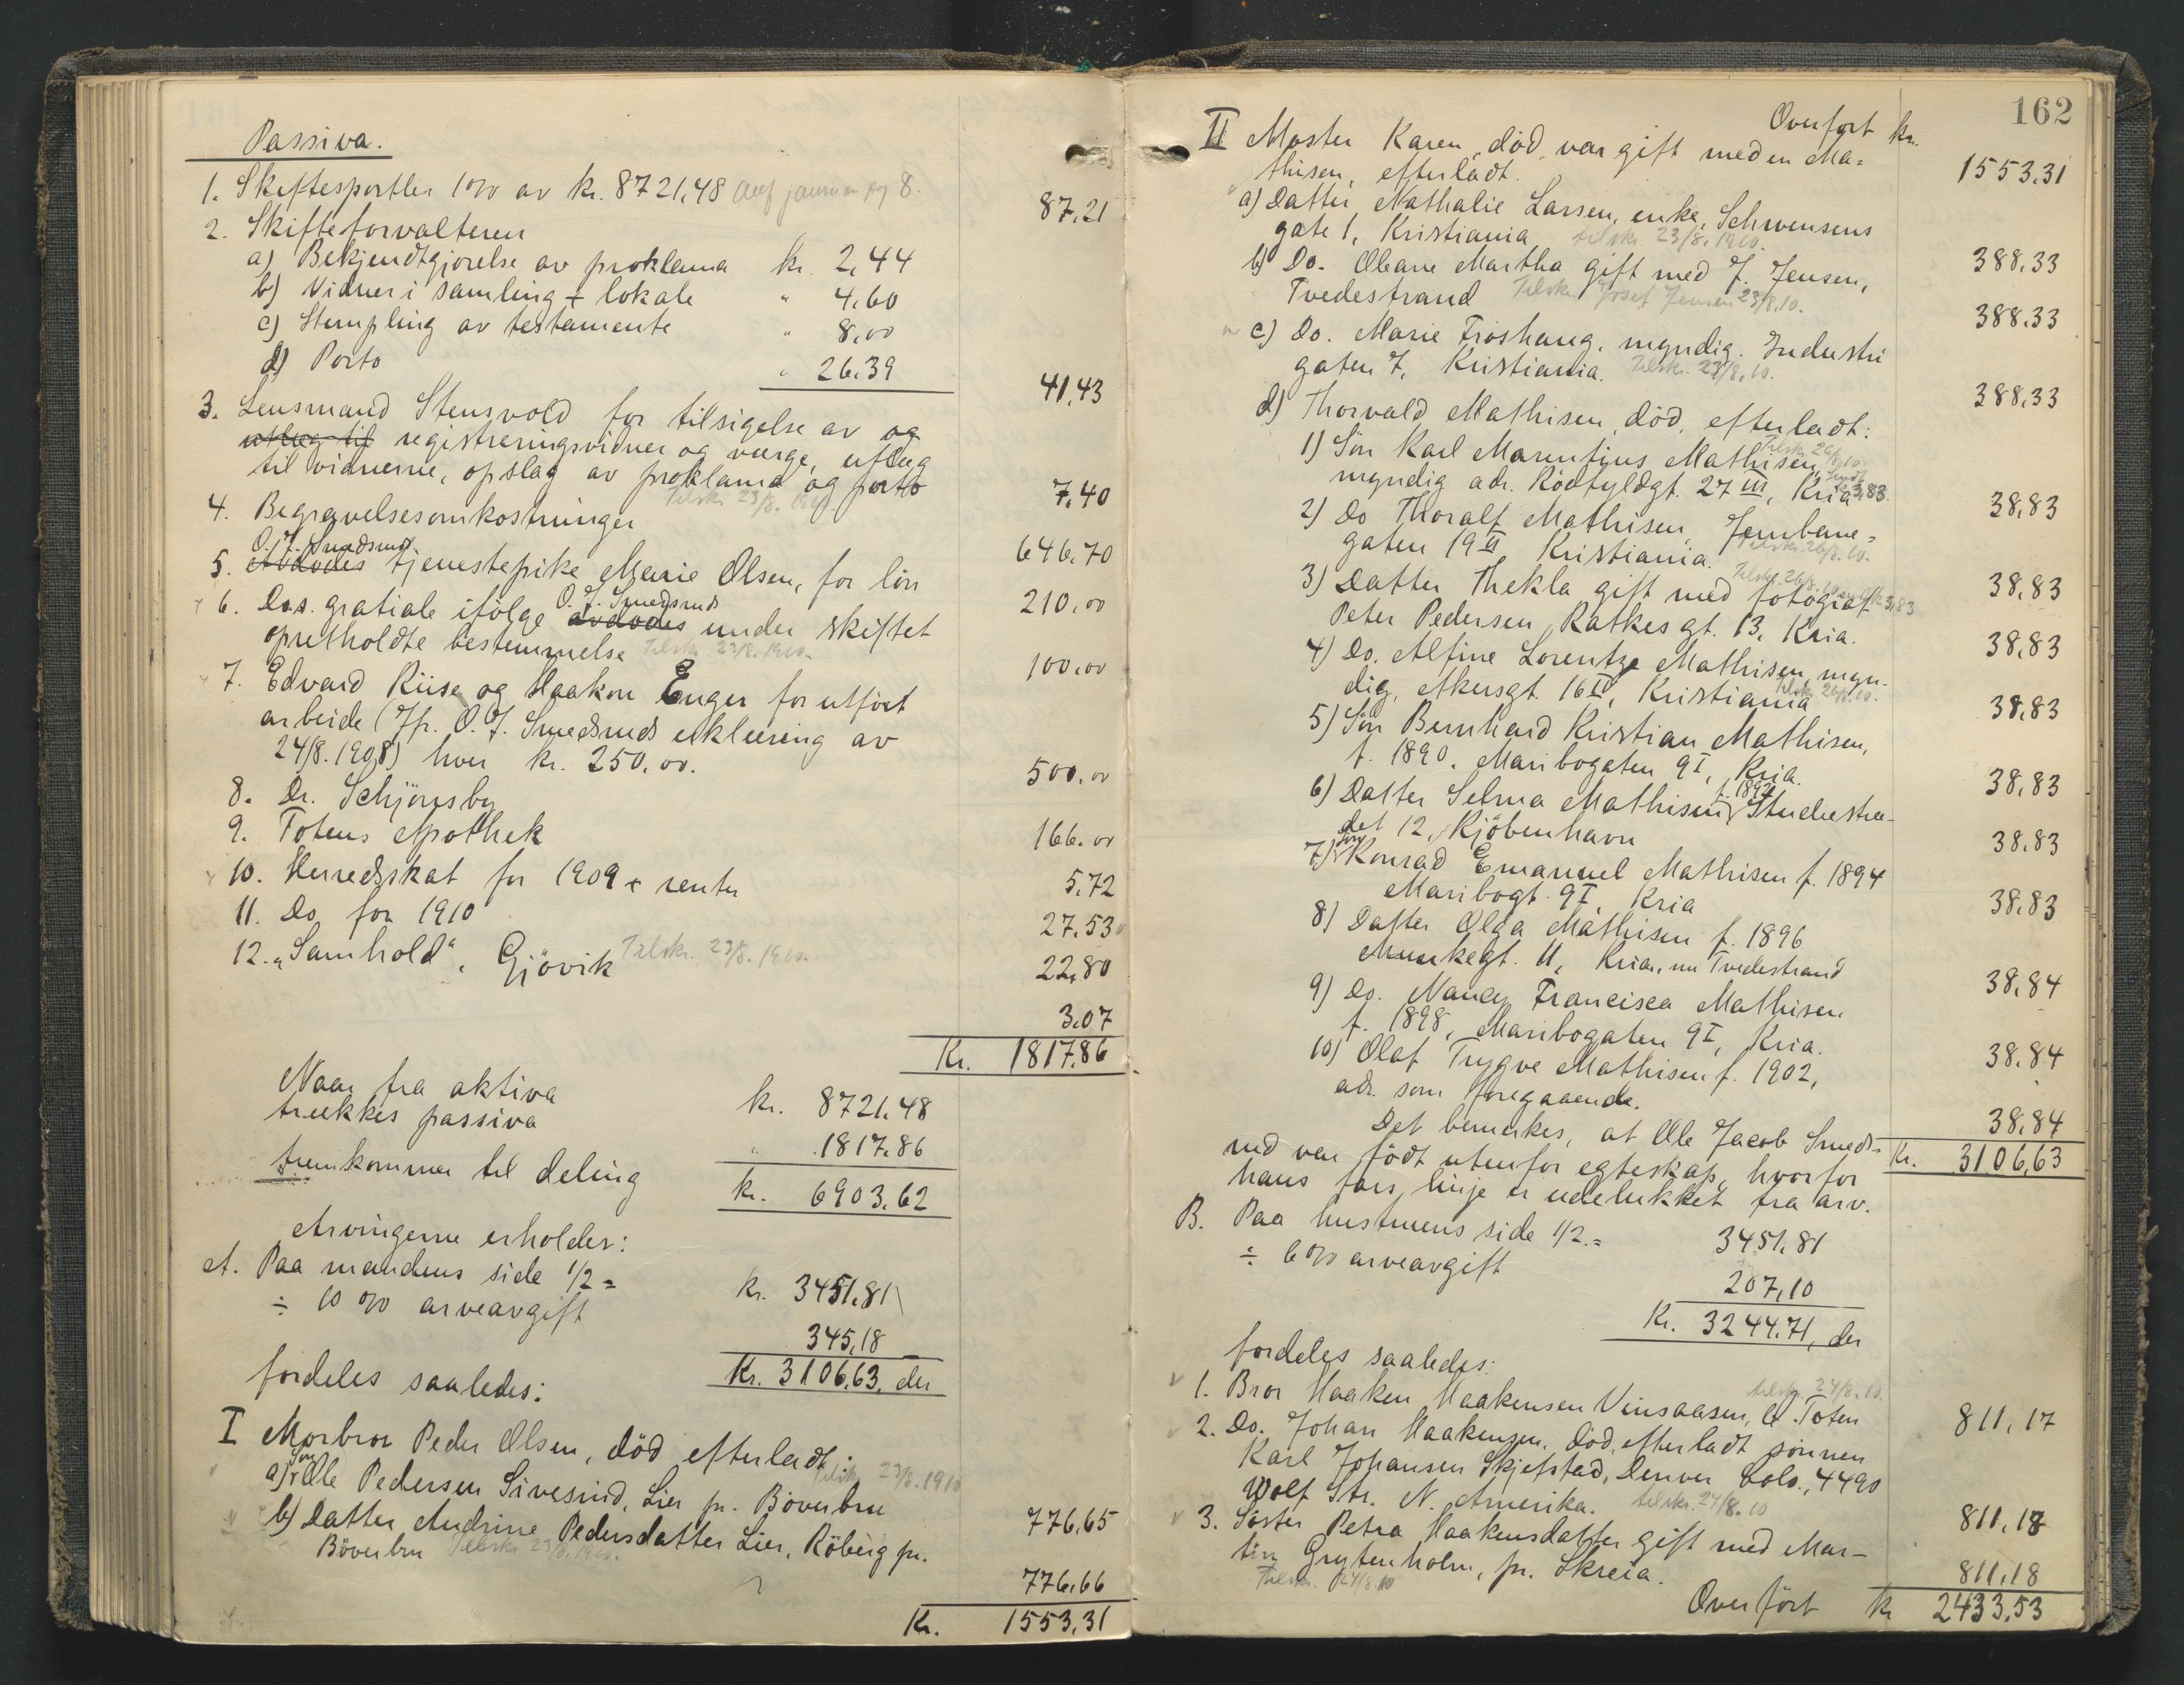 Passiva.
1. Skiftesportler 1 % av kr. 8721,48 87,21
2. Skifteforvalteren
a) Bekjendtgjörelse av proklama kr. 2,44
b) Vidner i samling + lokale " 4,60
c) Stempling av testamente " 8,00
d) Porto " 26,39
41,43
3. Lensmand Stensvold for tilsigelse av og
utlæg til registreringsvidner og værge, utlæg
til vidnerne, opslag av proklama og porto 7,40
Tilskr. 23/8. 1910.
4. Begravelsesomkostninger 646,70
O. J. Smedsruds
5. Avdødes tjenestepike Marie Olsen, for lön 210,00
O. J. Smedsruds
6. Do.s. gratiale ifölge avdødes under skiftet
opretholdte bestemmelse Tilskr. 23/8. 1910. 100,00
7. Edvard Riise og Haakon Enger for utfört
arbeide (Jfr. O. J. Smedsruds erklæring av
24/8. 1908) hver kr. 250.00. 500,00
8. Dr. Schjörnsby 166.00
9. Totens Apothek 5,72
10. Herredsskat for 1909 + renter 27,53
11. Do. for 1910 22,80
12. „Samhold", Gjövik Tilskr. 23/8. 1910. 3,07
Kr. 1817,86
Naar fra aktiva kr. 8721,48
trækkes passiva " 1817,86
fremkommer til deling kr. 6903,62
Arvingerne erholder:
A. Paa mandens side 1/2 = kr. 3451,81
÷ 10 % arveavgift 345,18
Kr. 3106,63, der
fordeles saaledes:
I Morbror Peder Olsen, död, efterladt:
Sön Tilskr. 23/8. 1910
a) Ole Pedersen Sivesind, Lier pr. Böverbru 776,65
b) Datter Andrine Pedersdatter Lier, Röberg pr.
Böverbru Tilskr. 23/8. 1910. 776,66
Kr. 1553,31
162
Overfört kr. 1553,31
II Moster Karen, död, var gift med en Ma-
thisen, efterladt.
a) Datter Nathalie Larsen, enke, Schwensens
gate 1, Kristiania tilskr. 23/8. 1910. 388,33
b) Do. Oleane Martha gift med J. Jensen,
Tvedestrand Tilskr. Josef Jensen 23/8. 10. 388,33
c) Do. Marie Frøshaug, myndig. Industri
gaten 7, Kristiania. Tilskr. 23/8. 10. 388,33
d) Thorvald Mathisen, död, efterladt:
1) Sön Karl Marentius Mathisen, Tilskr. 26/8. 10.
myndig adr. Rödfyldgt. 27 III, Kria 38,83
2) Do Thoralf Mathisen, Jernbane-
gaten 19 II, Kristiania. Tilskr. 26/8. 10. 38,83
3) Datter Thekla gift med fotograf
Peter Pedersen, Ratkesgt. 13, Kria. 38,83
4) Do. Alfine Lorentze Mathisen, myn-
dig, Akersgt. 16 I, Kristiania Tilskr. 26/8. 10. 38,83
5) Sön Bernhard Kristian Mathisen,
f. 1890, Maribogaten 9 I, Kria. 38,83
6) Datter Selma Mathisen, f. 1892 Studiestræ-
det 12, Kjöbenhavn 38,83
7) Sön Konrad Emanuel Mathisen f. 1894
Maribogt. 9 I, Kria 38,83
8) Datter Olga Mathisen f. 1896
Munkegt. 11, Kria., nu Tvedestrand 38,84
9) Do. Nancy Francisca Mathisen
f. 1898, Maribogaten 9 I, Kria. 38,84
10) Olaf Trygve Mathisen f. 1902,
adr. som foregaaende. 38,84
Kr. 3106,63
Det bemerkes, at Ole Jacob Smeds-
rud var födt utenfor egteskap, hvorfor
hans fars linje er udelukket fra arv.
B. Paa hustruens side 1/2 = 3451,81
÷ 6 % arveavgift 207,10
Kr. 3244,71, der
fordeles saaledes:
1. Bror Haaken Haakensen Vinsaasen, V. Toten tilskr. 24/8. 10. 811,17
2. Do. Johan Haakensen, död, efterladt sönnen
Karl Johansen Skjefstad, Denver Colo., 4490
Wolf Str. N. Amerika. tilskr. 24/8. 10 811,18
3. Söster Petra Haakensdatter gift med Mar-
tin Grytenholm, pr. Skreia. 811,18
Tilskr. 24/8. 10
Overfört kr 2433,53